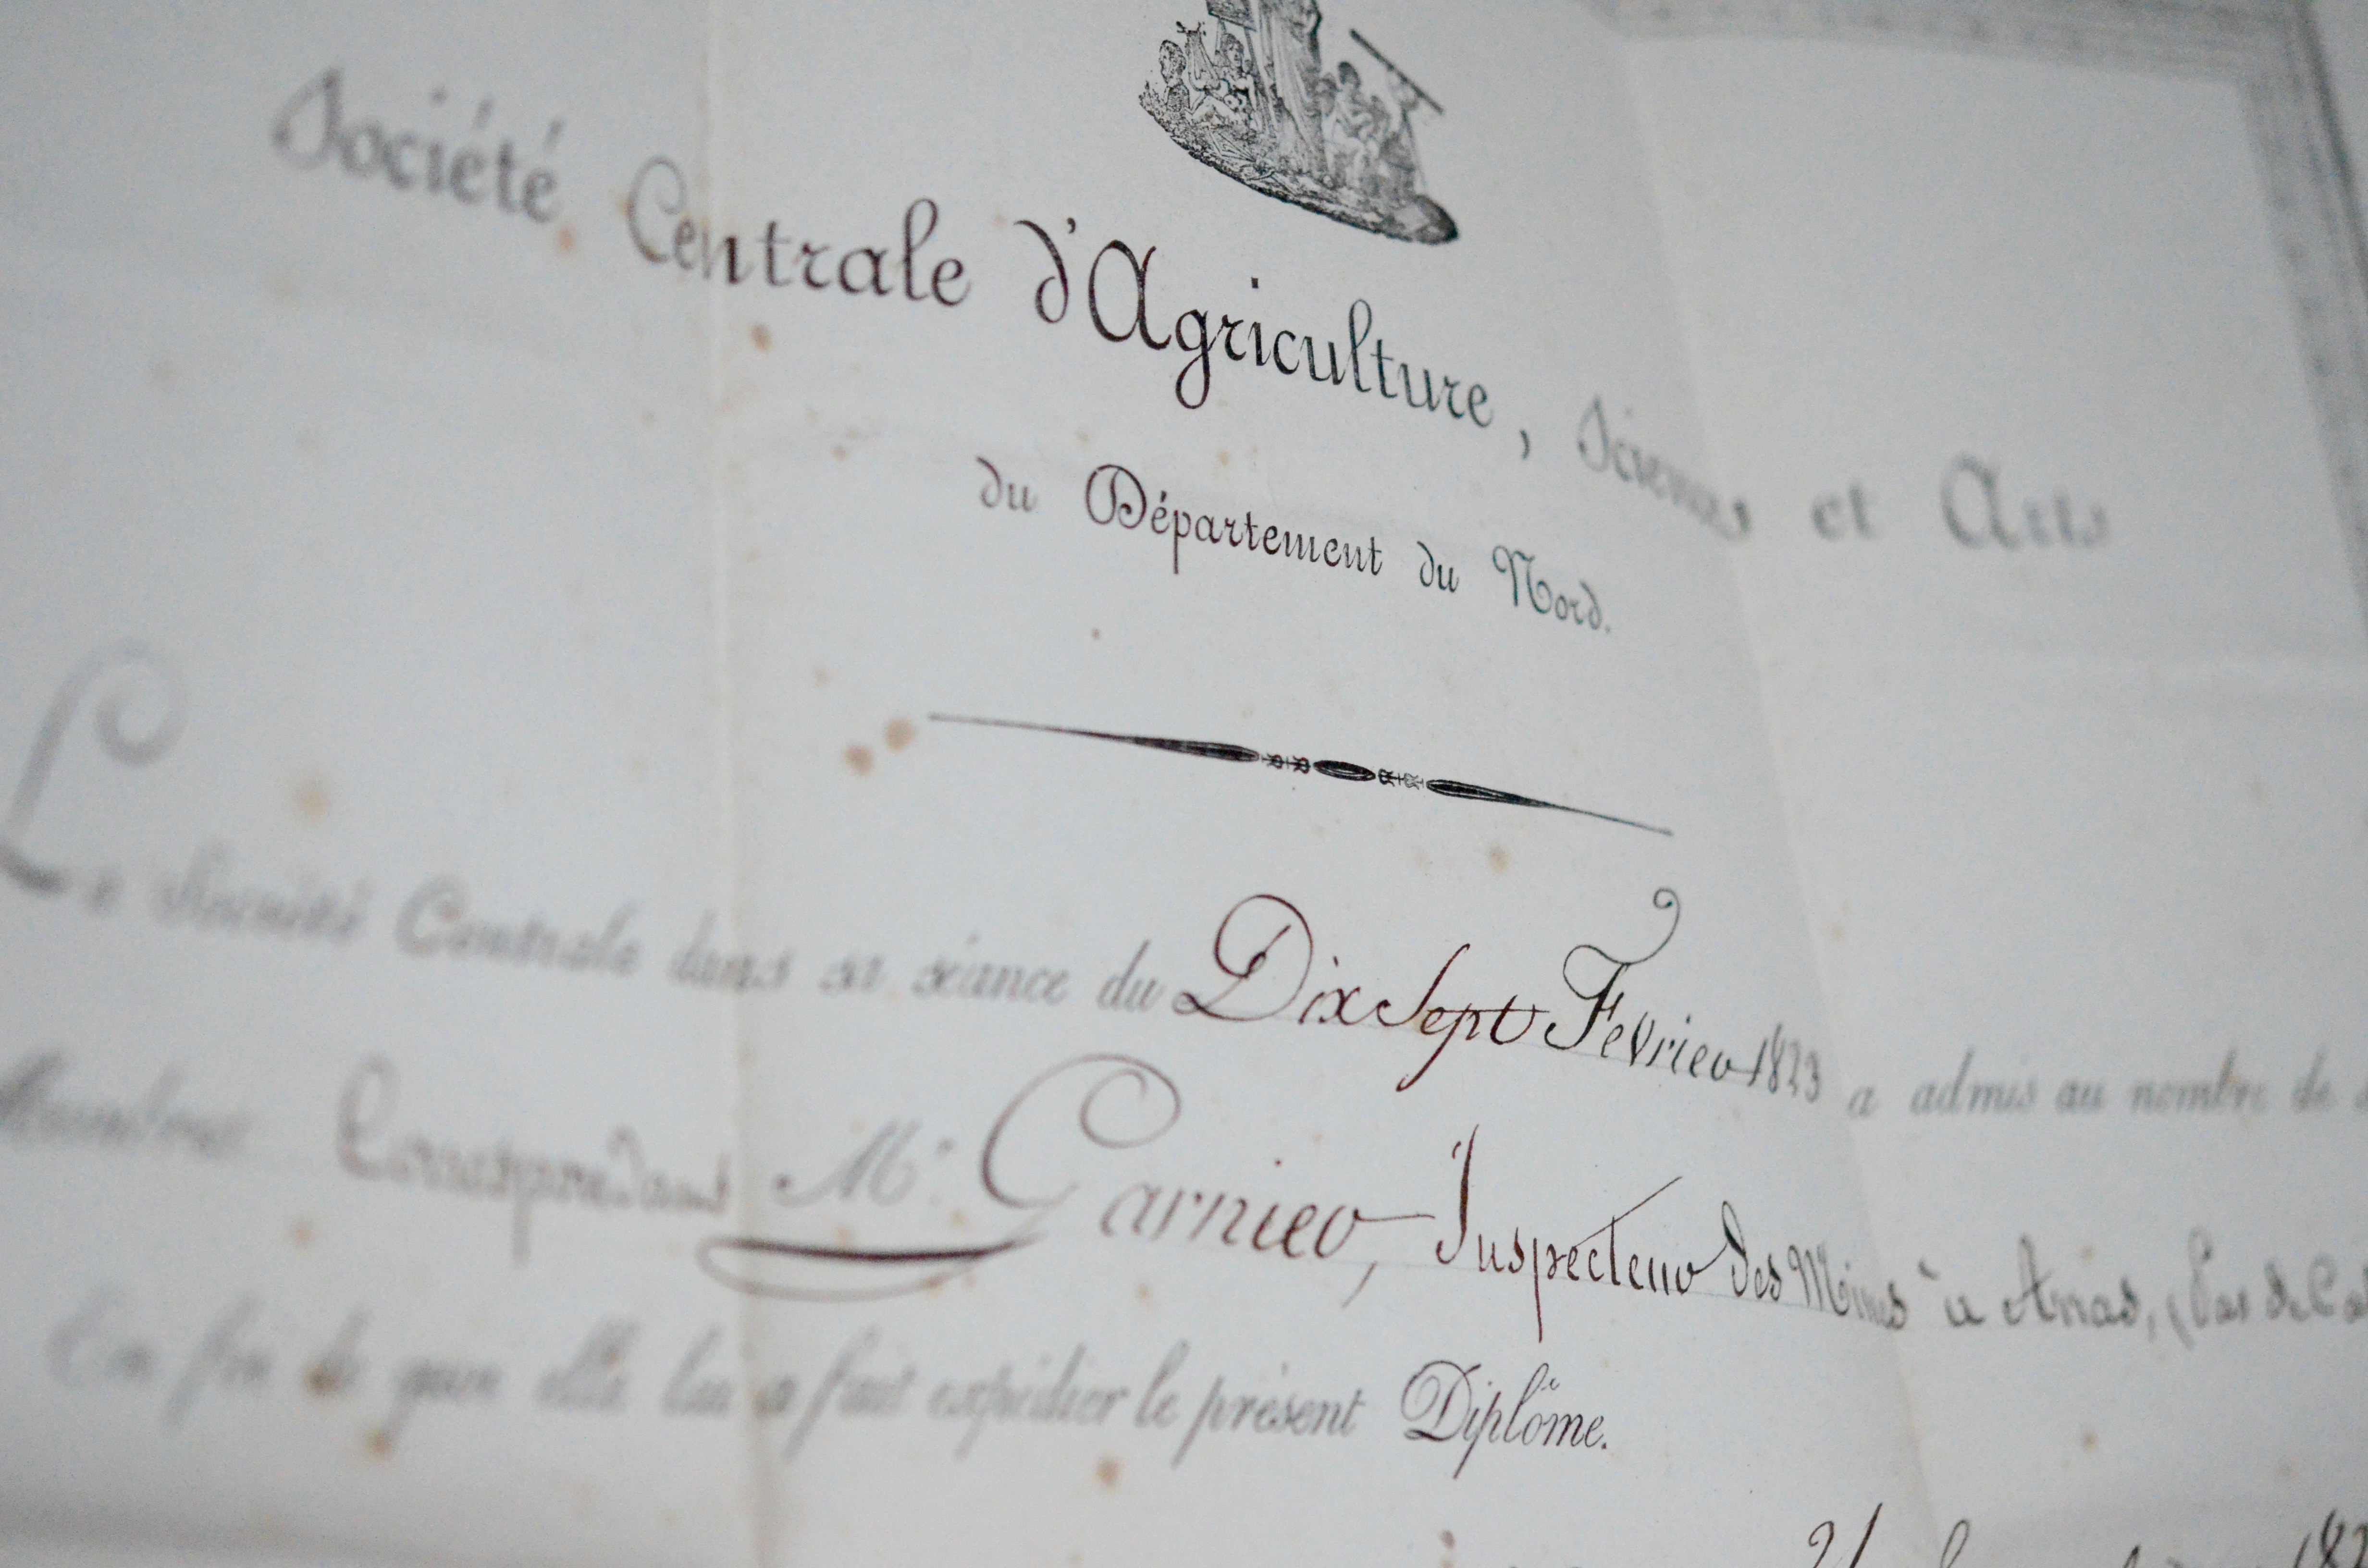 Société Centrale d'Agriculture, Sciences et Arts
du Département du Nord.
La Société Centrale dans sa séance du Dix Sept Fevrier 1823 a admis au nombre de
Membres Correspondans Mr. Garnier, Inspecteur des Mines à Arras, (Pas de Ca
En foi de quoi elle lui a fait expédier le présent Diplôme.